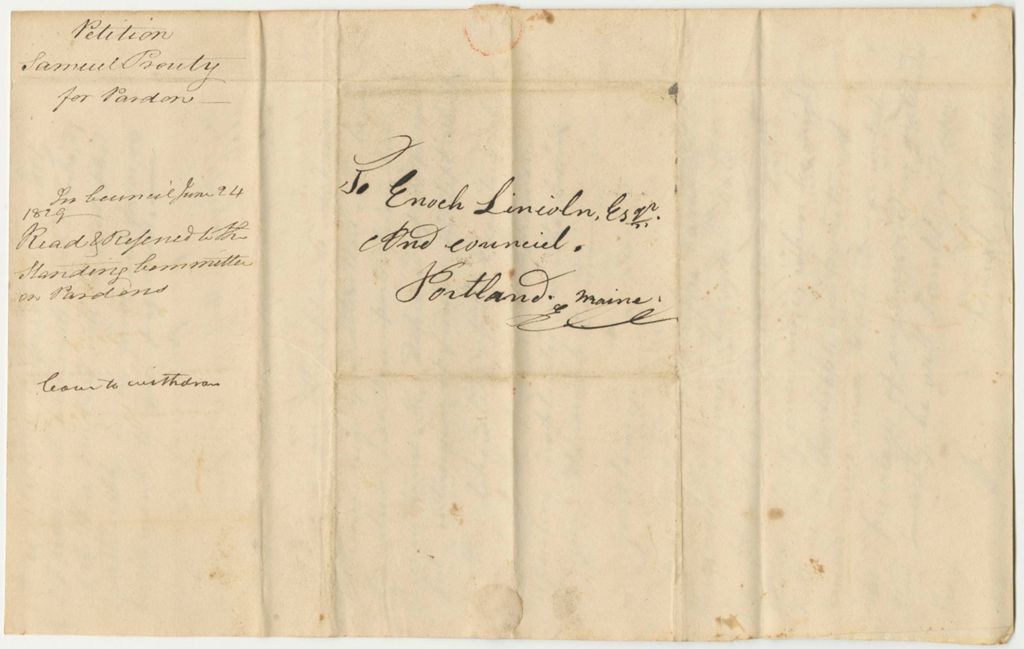 Petition
Samuel Prouty
for Pardon
In Council June 24
1829
Read & Refered to the
Standing Committee
on Pardons
leave to withdraw
To
Enoch Lincoln, Esqr.
And council.
Portland. Maine.